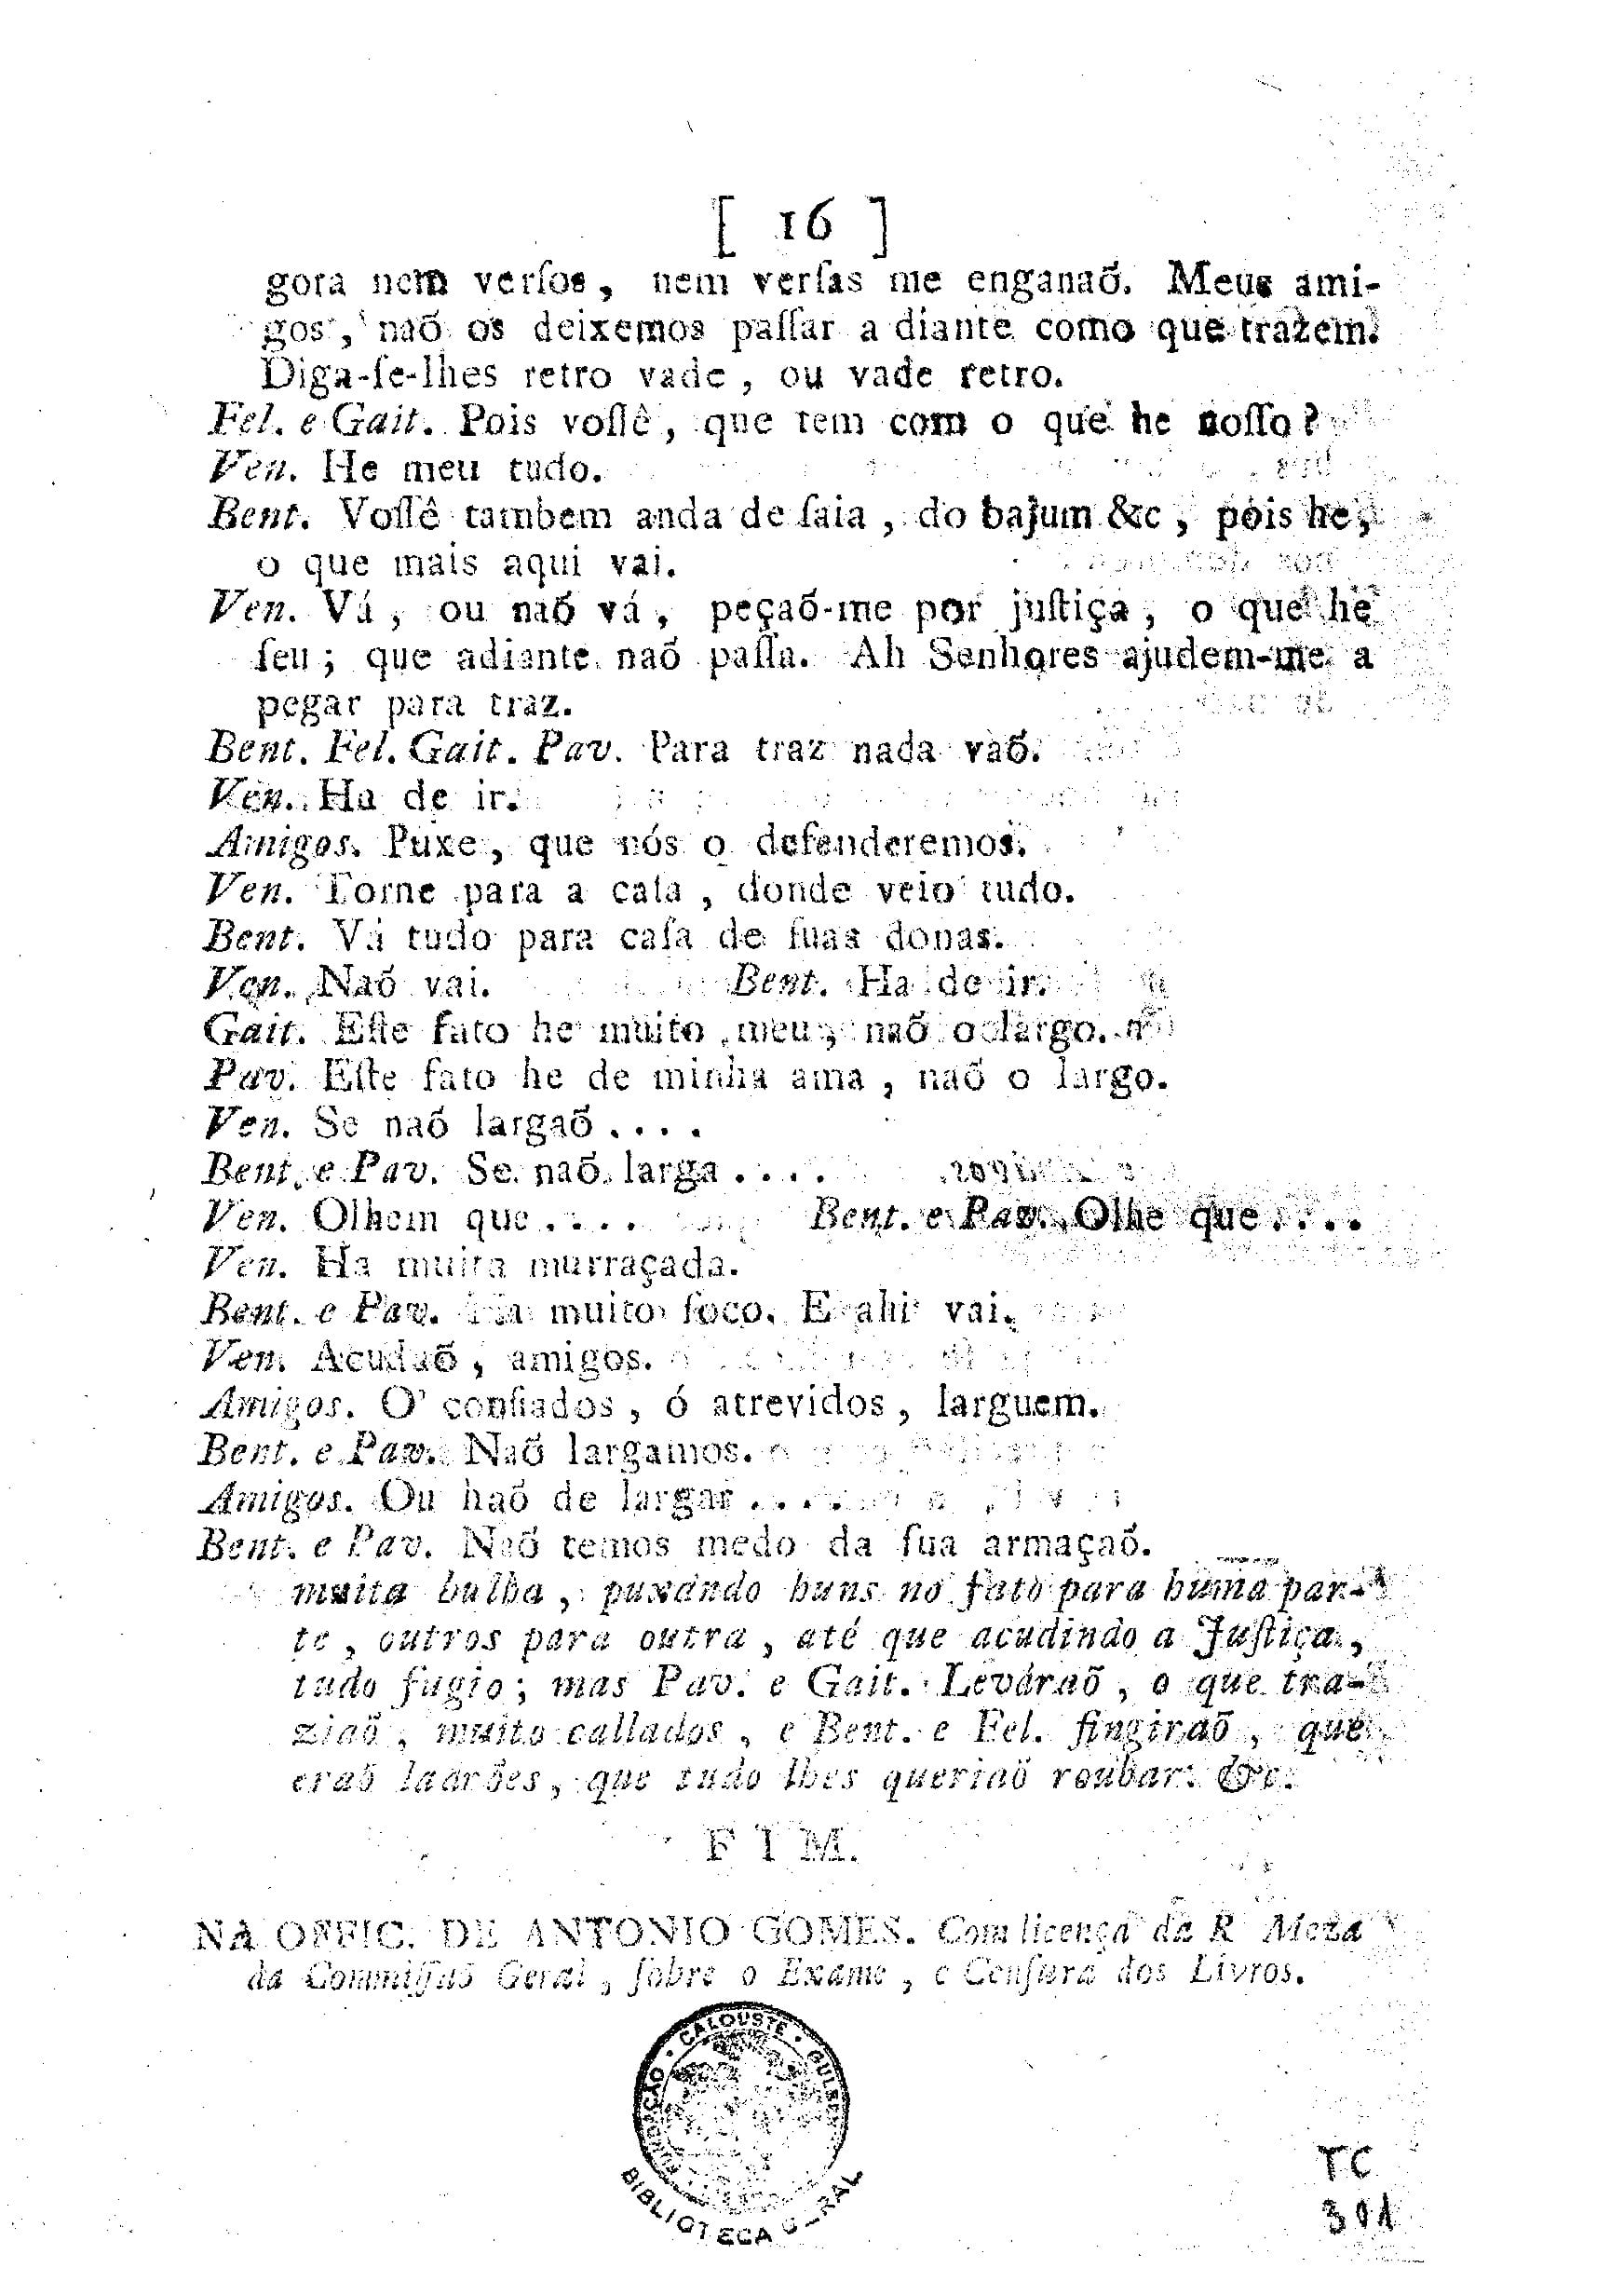 [ 16 ]
gora nem verſos, nem verſas me enganaõ. Meus ami-
gos, naõ os deixemos paſſar a diante como que trazem.
Diga-ſe-lhes retro vade, ou vade retro.
Fel. e Gait. Pois voſſê, que tem com o que he noſſo?
Ven. He meu tudo.
Bent. Voſſê tambem anda de ſaia, do bajum &c, pois he,
o que mais aqui vai.
Ven. Vá, ou naõ vá, peçaõ-me por juſtiça, o que he
ſeu; que adiante naõ paſſa. Ah Senhores ajudem-me a
pegar para traz.
Bent. Fel. Gait. Pav. Para traz nada vaõ.
Ven. Ha de ir.
Amigos. Puxe, que nós o defenderemos.
Ven. Torne para a caſa, donde veio tudo.
Bent. Vá tudo para caſa de ſuas donas.
Ven. Naõ vai. Bent. Ha de ir.
Gait. Eſte fato he muito meu, naõ o largo.
Pav. Eſte fato he de minha ama, naõ o largo.
Ven. Se naõ largaõ ....
Bent. e Pav. Se naõ larga ....
Ven. Olhem que .... Bent. e Pav. Olhe que ....
Ven. Ha muita murraçada.
Bent. e Pav. Ha muito ſoco. E ahi vai.
Ven. Acudaõ, amigos.
Amigos. O' confiados, ó atrevidos, larguem.
Bent. e Pav. Naõ largamos.
Amigos. Ou haõ de largar ....
Bent. e Pav. Naõ temos medo da ſua armaçaõ.
muita bulha, puxando huns no fato para huma par-
te, outros para outra, até que acudindo a Juſtiça,
tudo fugio; mas Pav. e Gait. Leváraõ, o que tra-
ziaõ, muito callados, e Bent. e Fel. fingiraõ, que
eraõ ladrões, que tudo lhes queriaõ roubar. &c.
FIM.
NA OFFIC. DE ANTONIO GOMES. Com licença da R Meza
da Commiſſaõ Geral, ſobre o Exame, e Cenſura dos Livros.
CALOUSTE
BIBLIOTECA
TC
301